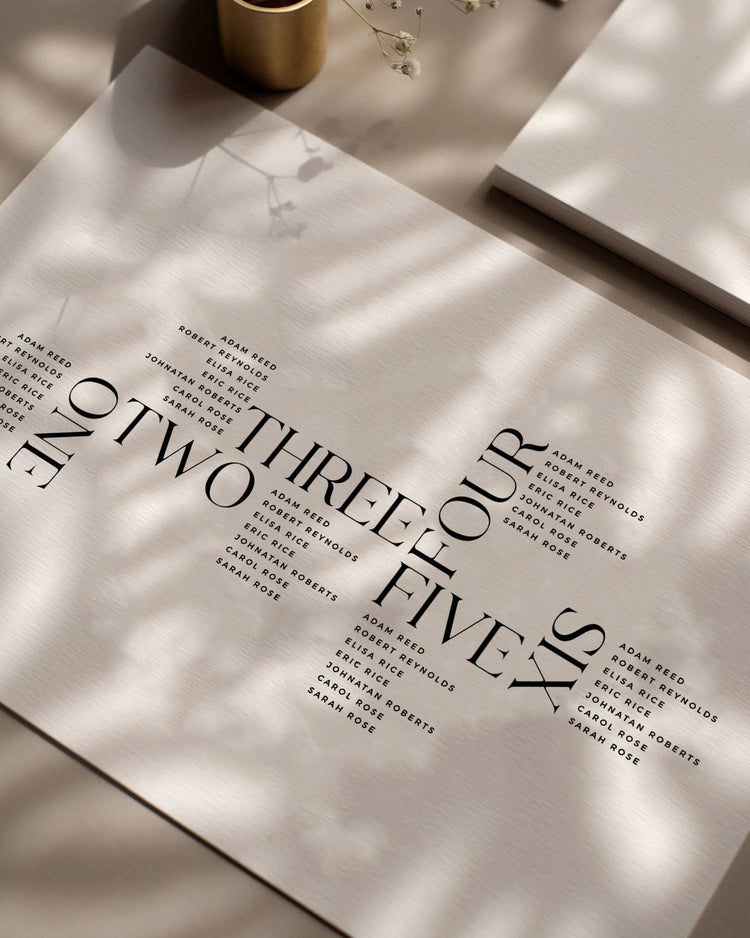 ADAM REED
REYNOLDS
ELISA RICE
ERIC RICE
ROSE
ONE
TWO
ADAM REED
ROBERT REYNOLDS
ELISA RICE
ERIC RICE
JOHNATAN ROBERTS
CAROL ROSE
SARAH ROSE
THREE
ADAM REED
ROBERT REYNOLDS
ELISA RICE
ERIC RICE
JOHNATAN ROBERTS
CAROL ROSE
SARAH ROSE
FOUR
ADAM REED
ROBERT REYNOLDS
ELISA RICE
ERIC RICE
JOHNATAN ROBERTS
CAROL ROSE
SARAH ROSE
FIVE
ADAM REED
ROBERT REYNOLDS
ELISA RICE
ERIC RICE
JOHNATAN ROBERTS
CAROL ROSE
SARAH ROSE
SIX
ADAM REED
ROBERT REYNOLDS
ELISA RICE
ERIC RICE
JOHNATAN ROBERTS
CAROL ROSE
SARAH ROSE